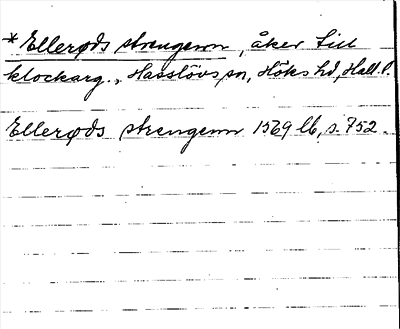 *Ellerøds strengenn, åker till
klockarg., Hasslövs sn, Höks hd, Hall. l.
Ellerøds strengenn 1569 lb, s. 752.